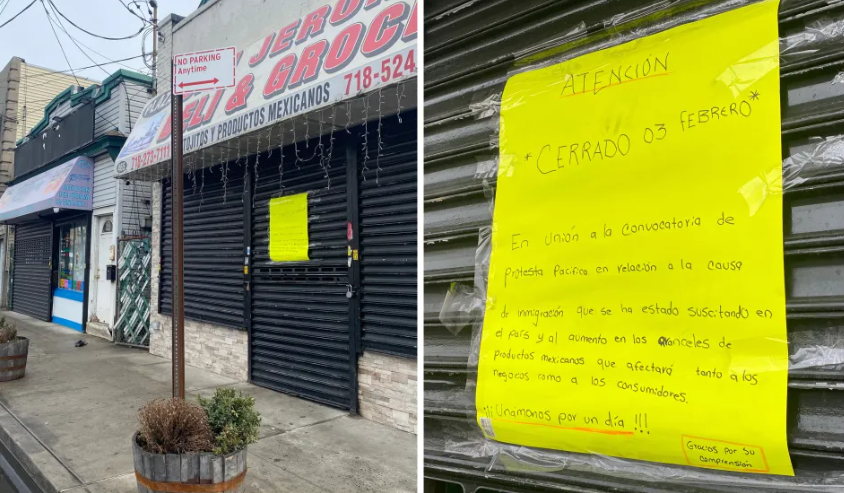 NO PARKING
Anytime
JERO
DELI & GROCE
718-524
TOJITOS Y PRODUCTOS MEXICANOS
ATENCIÓN
*CERRADO 03 FEBRERO*
En unión a la convocatoria de
Protesta Pacifica en relación a la causa
de inmigración que se ha estado suscitando en
el país y al aumento en los aranceles de
productos mexicanos que afectará tanto a los
negocios como a los consumidores.
¡¡ Unámonos por un día !!!
Gracias por su
comprensión